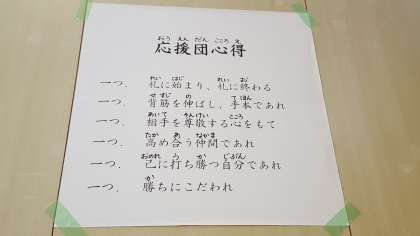 応援団心得
一つ、礼に始まり、礼に終わる
一つ、背筋を伸ばし、手本であれ
一つ、相手を尊敬する心をもて
一つ、高め合う仲間であれ
一つ、己に打ち勝つ自分であれ
一つ、勝ちにこだわれ